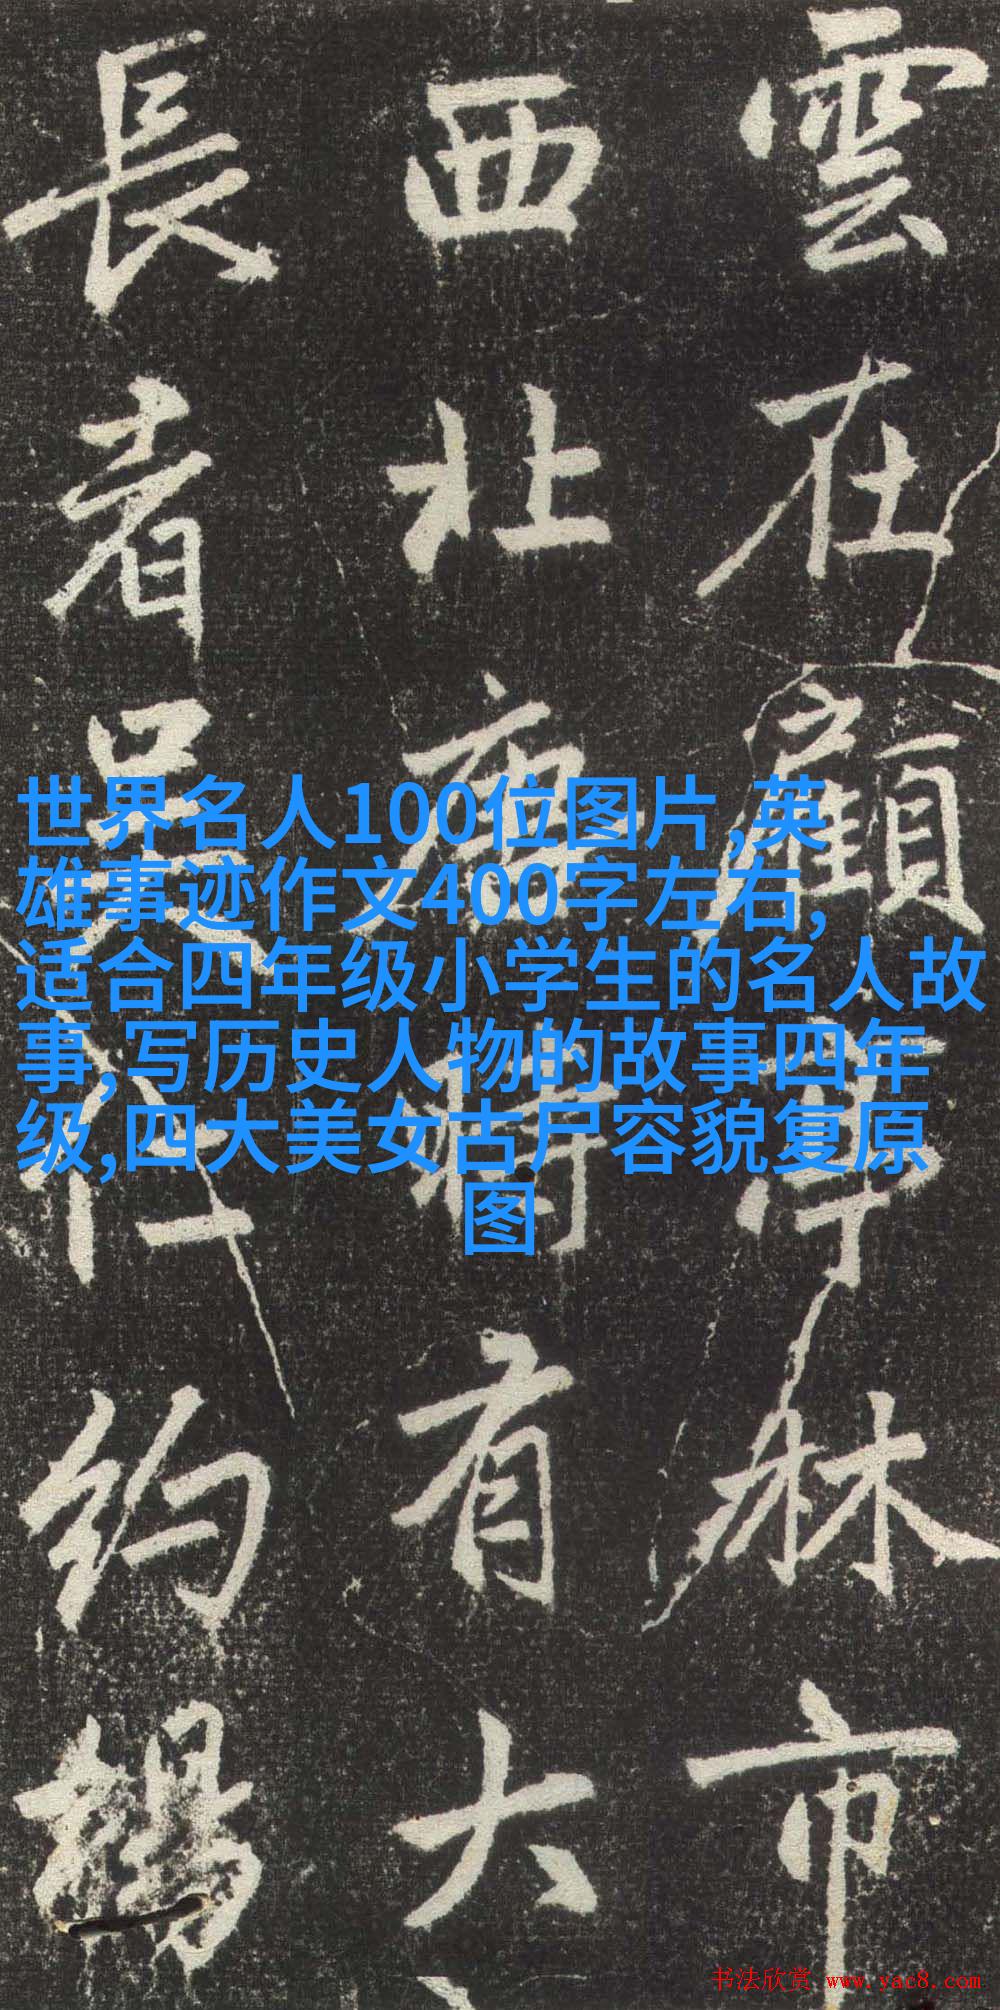 雲在顧亭林市
西北廟時有大
長者吴仁約楊
世界名人100位图片,英
雄事迹作文400字左右,
适合四年级小学生的名人故
事,写历史人物的故事四年
级,四大美女古尸容貌复原
图
书法欣赏 www.yac8.com